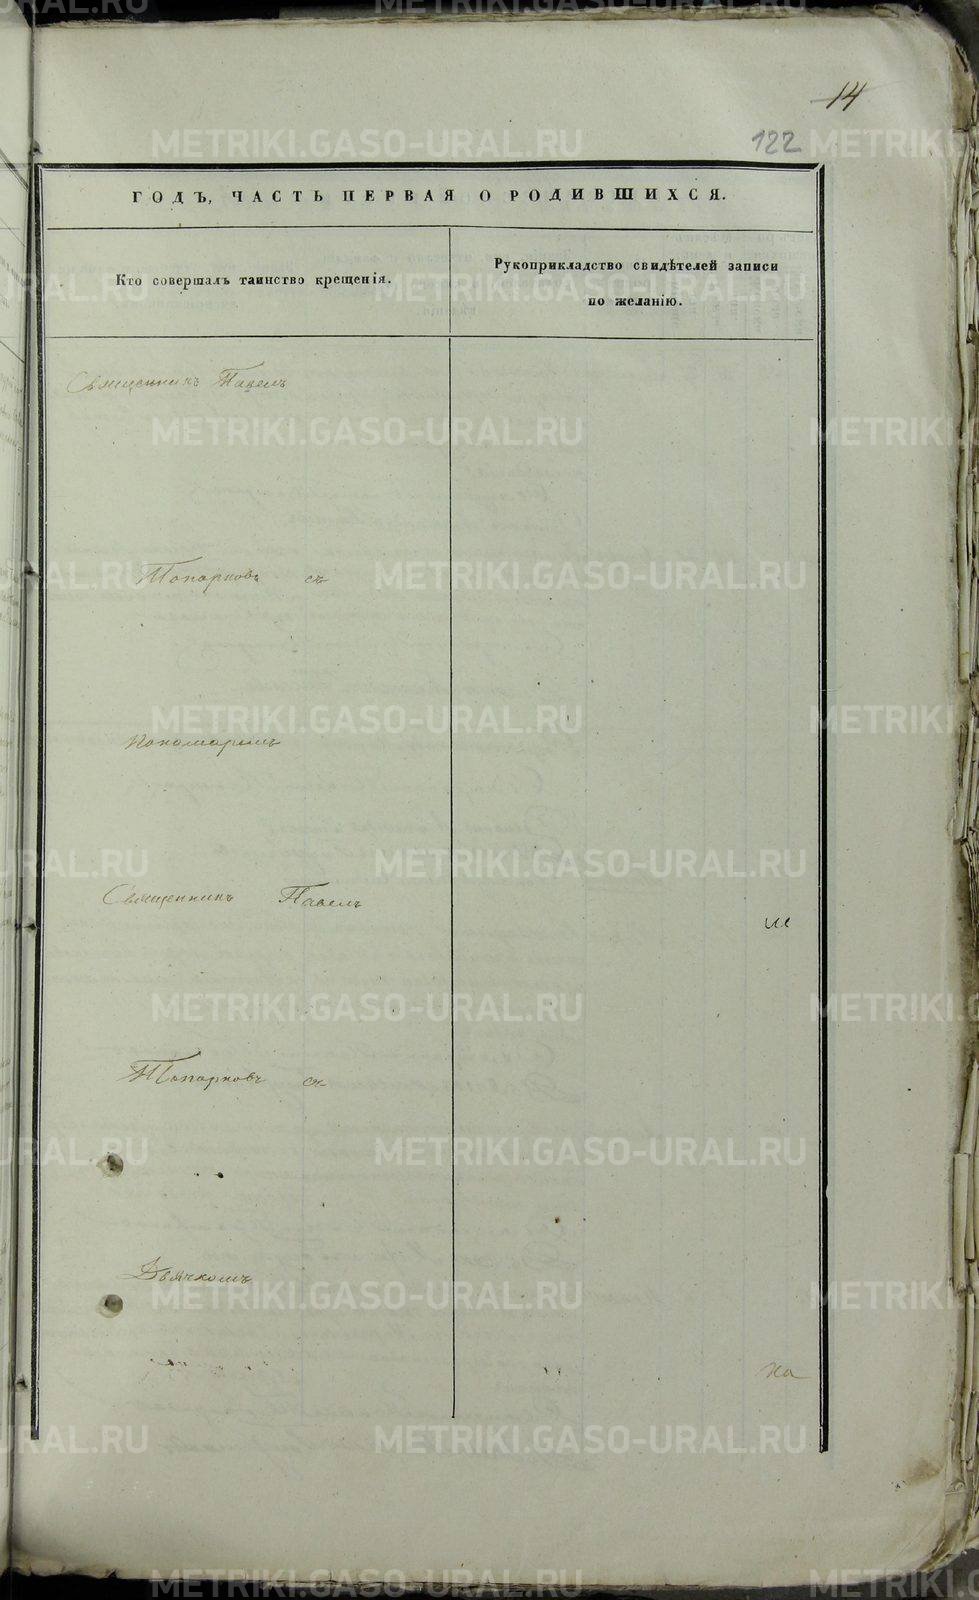 14
122
ГОДЪ, ЧАСТЬ ПЕРВАЯ О РОДИВШИХСЯ.
Кто совершалъ таинство крещенія.
Рукоприкладство свидѣтелей записи
по желанію.
Священникъ Павелъ
Топорковъ съ
Пономаремъ
Священникъ Павелъ
Топорковъ съ
Дьячкомъ
на
METRIKI.GASO-URAL.RU